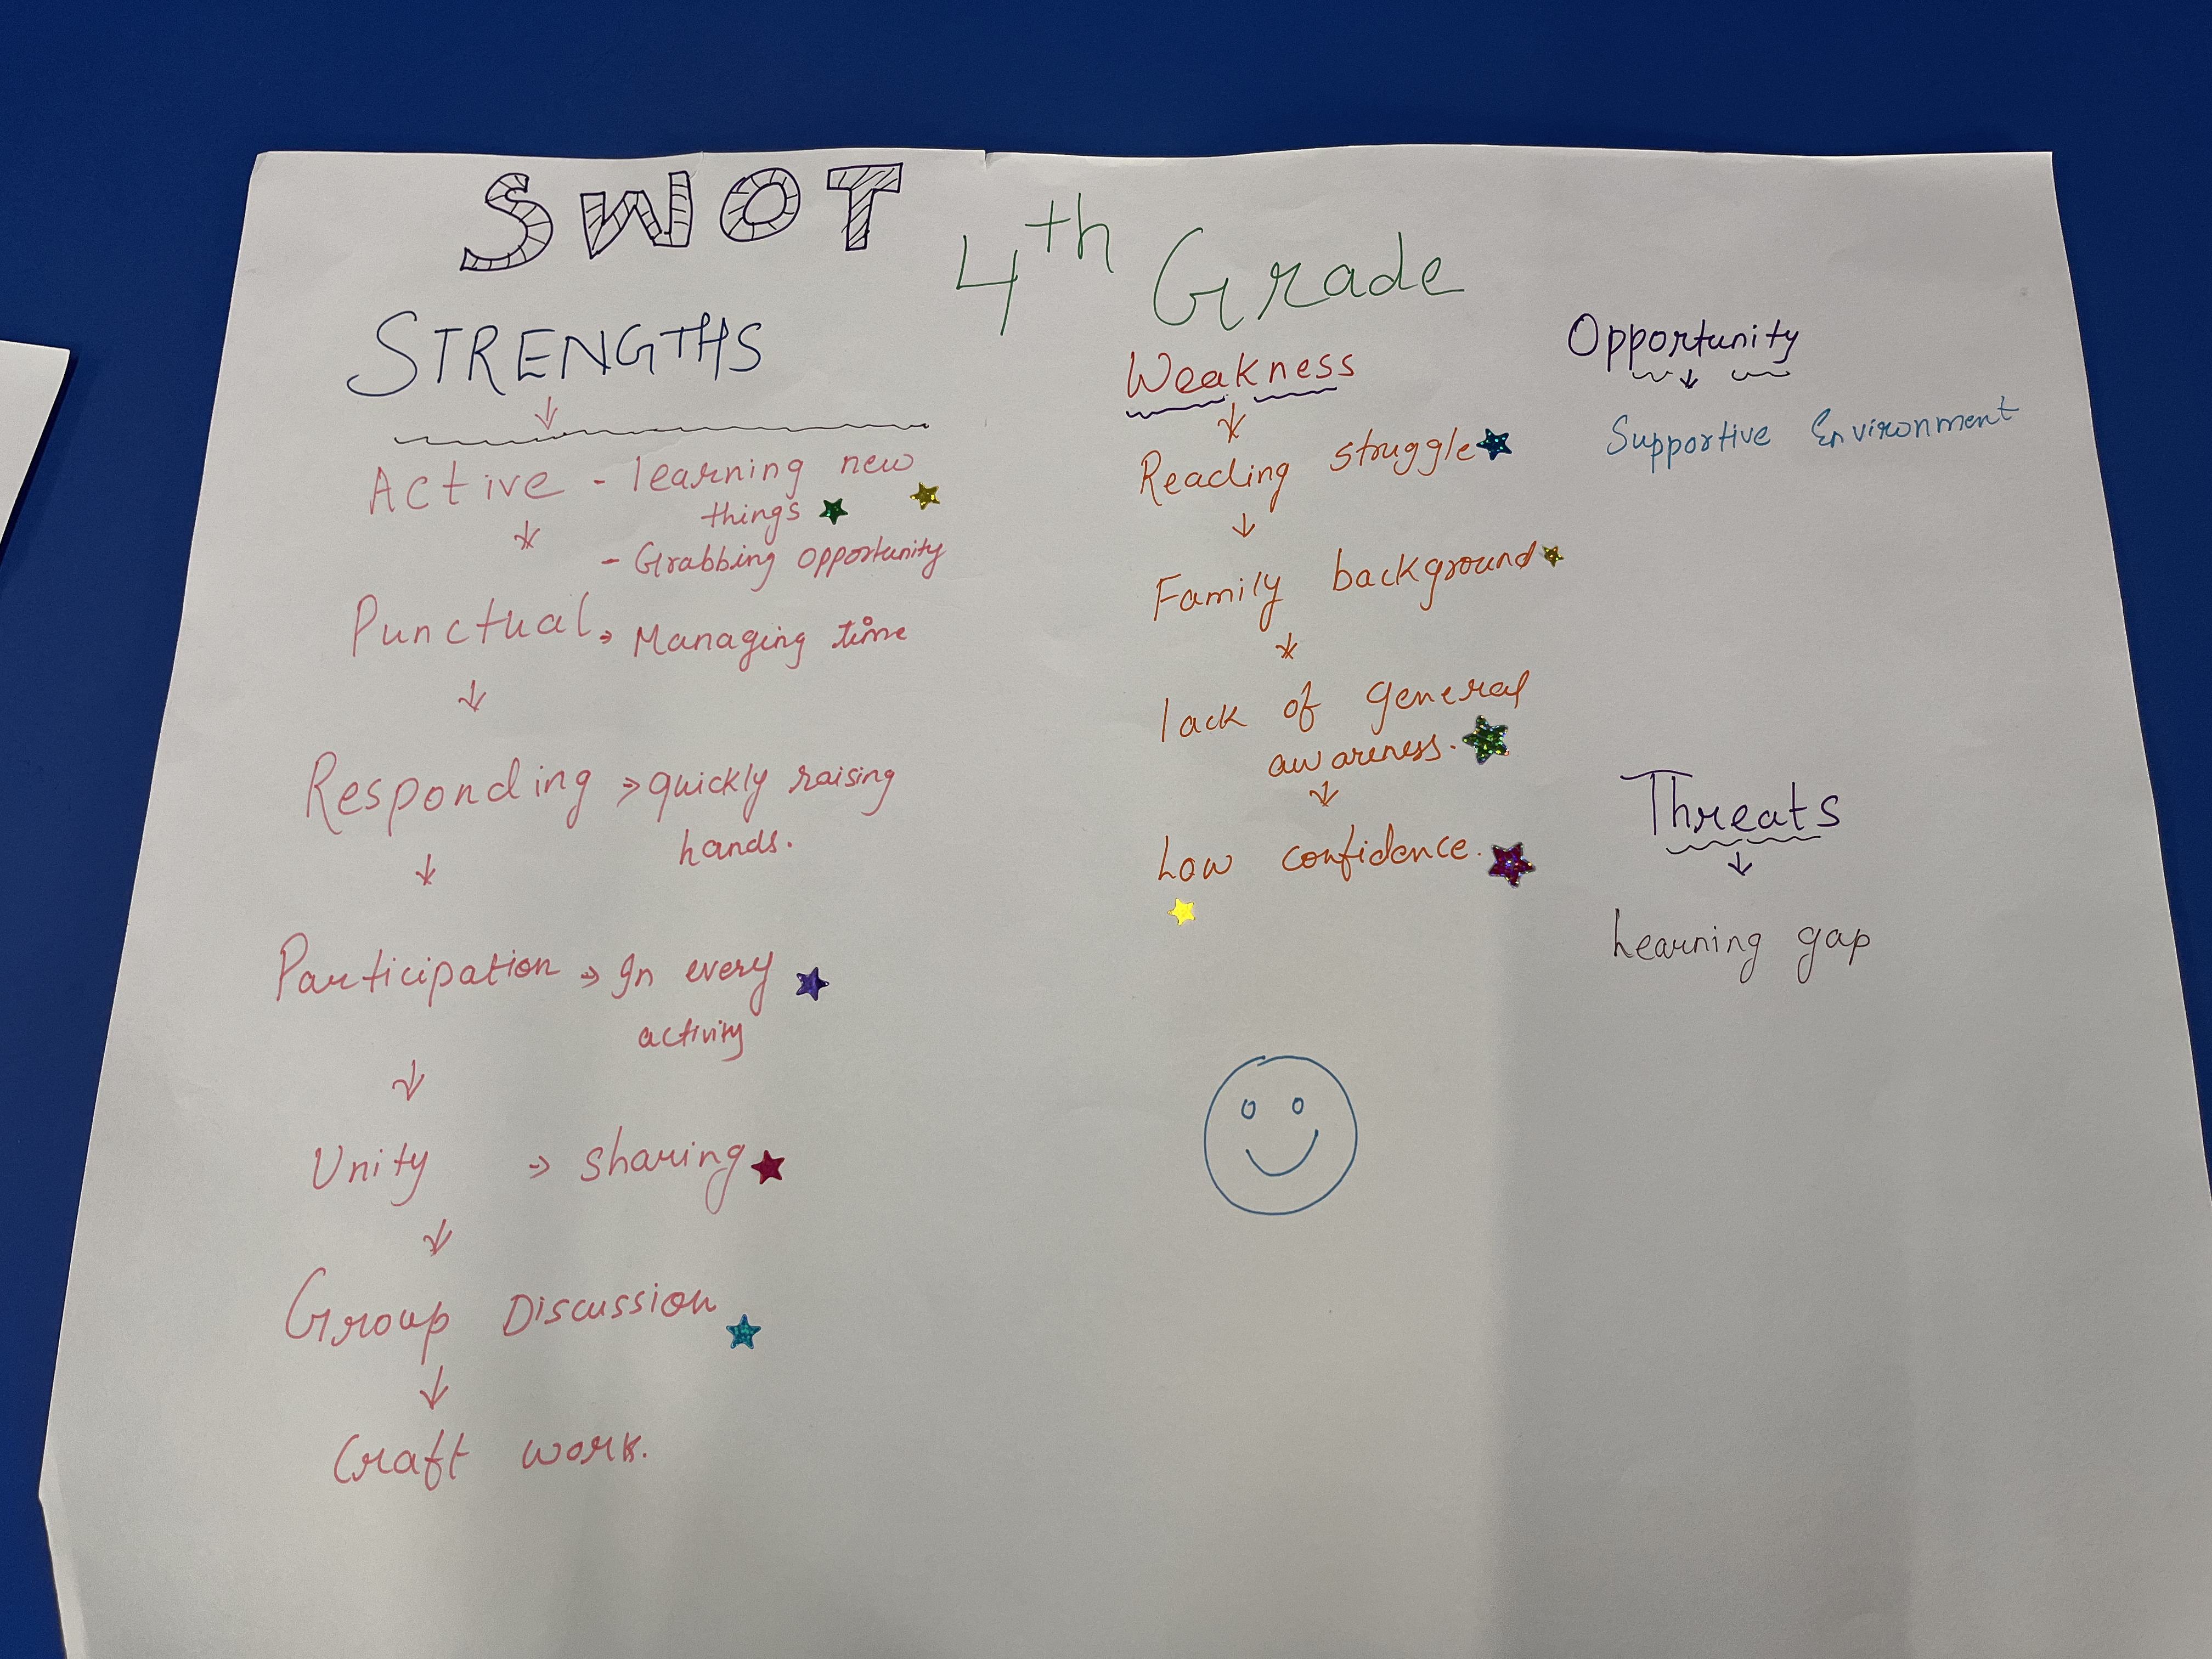 SWOT
4th Grade
STRENGTHS
Active - learning new
things
- Grabbing opportunity
Punctual → Managing time
Responding → quickly raising
hands.
Participation → In every
activity
Unity → Sharing
Group Discussion
Craft work.
Weakness
Reading struggle
Family background
lack of general
awareness.
Low confidence.
Opportunity
Supportive Environment
Threats
Learning gap